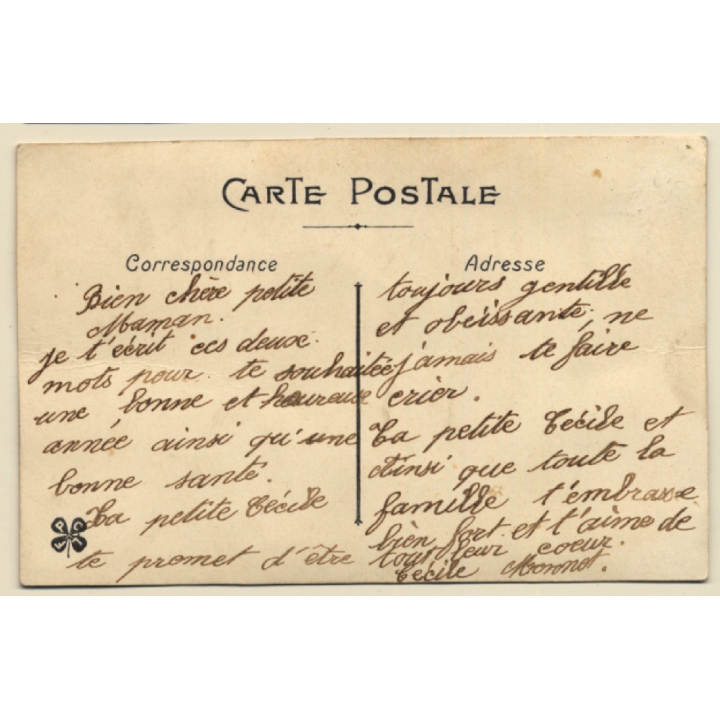 CARTE POSTALE
Correspondance
Bien chère petite
Maman.
je t'écrit ces deux
mots pour te souhaitée
une bonne et heureuse
année ainsi qu'une
bonne santé.
Ta petite Cécile
te promet d'être
Adresse
toujours gentille
et obéissante, ne
jamais te faire
crier.
Ta petite Cécile et
Ainsi que toute la
famille t'embrasse
bien fort et t'aime de
tout leur coeur.
Cécile